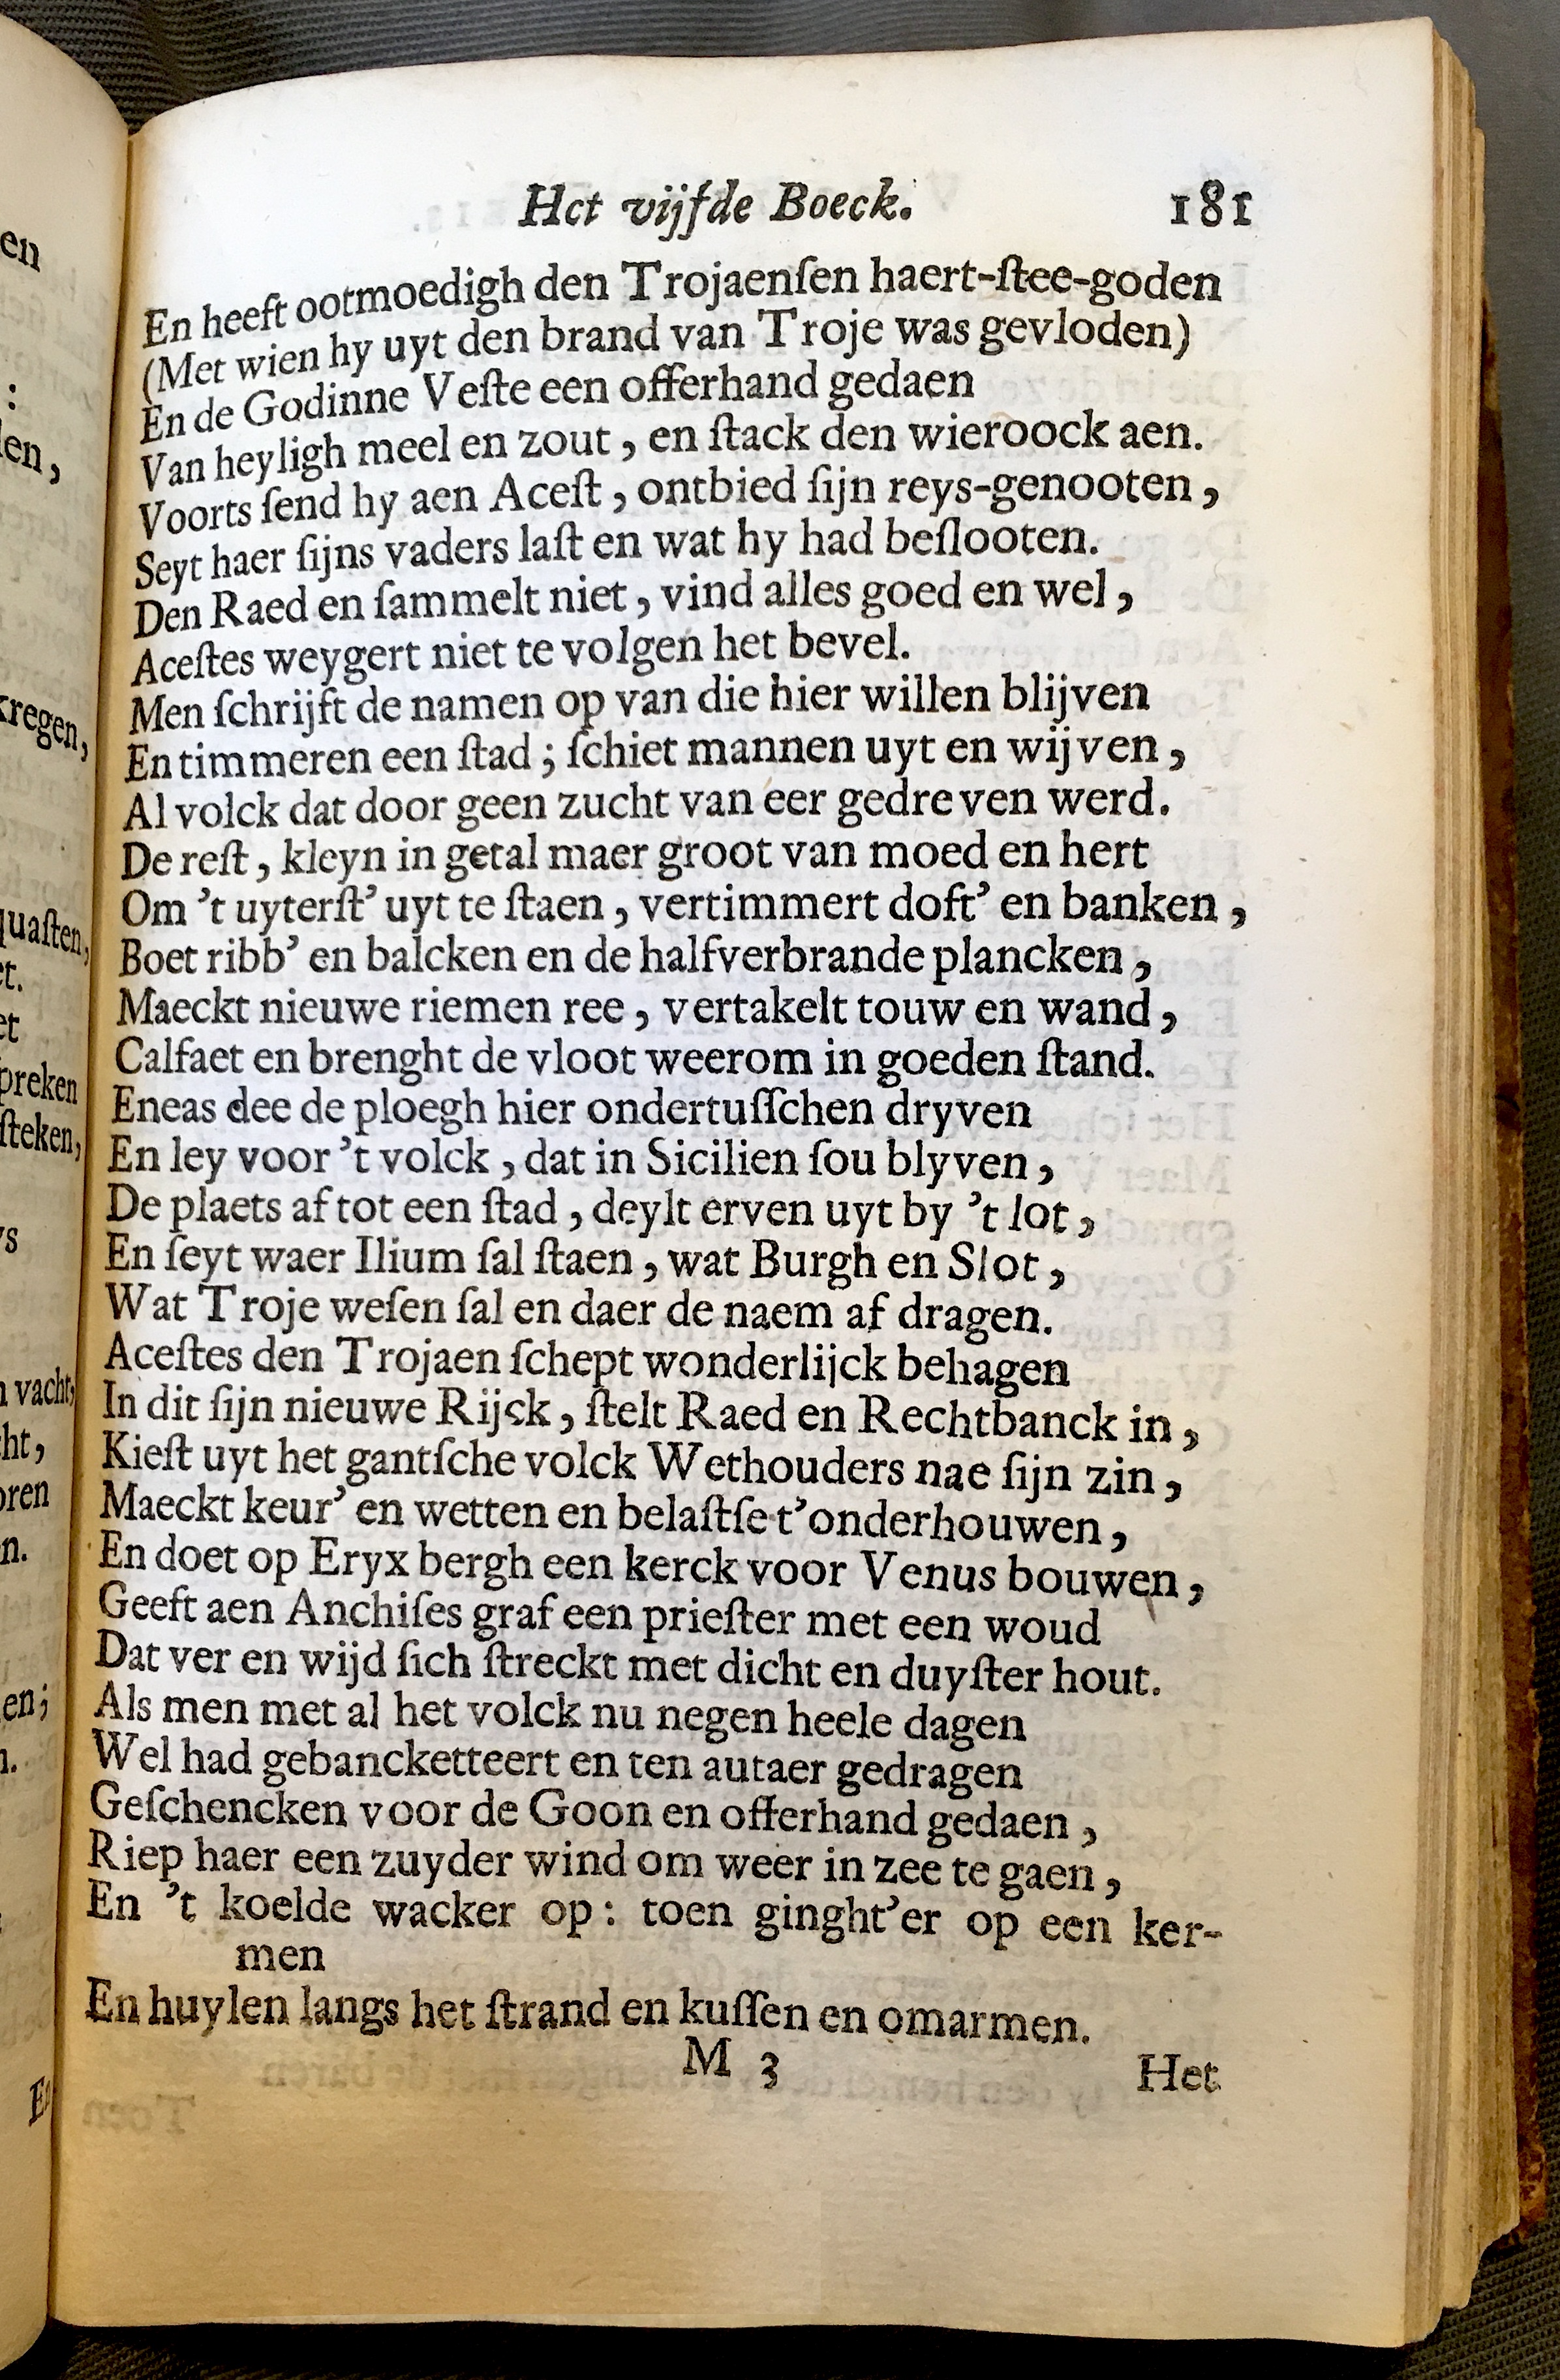 Het vijfde Boeck. 181
En heeft ootmoedigh den Trojaenſen haert-ſtee-goden
(Met wien hy uyt den brand van Troje was gevloden)
En de Godinne Veſte een offerhand gedaen
Van heyligh meel en zout, en ſtack den wieroock aen.
Voorts ſend hy aen Aceſt, ontbied ſijn reys-genooten,
Seyt haer ſijns vaders laſt en wat hy had beſlooten.
Den Raed en ſammelt niet, vind alles goed en wel,
Aceſtes weygert niet te volgen het bevel.
Men ſchrijft de namen op van die hier willen blijven
En timmeren een ſtad; ſchiet mannen uyt en wijven,
Al volck dat door geen zucht van eer gedreven werd.
De reſt, kleyn in getal maer groot van moed en hert
Om 't uyterſt' uyt te ſtaen, vertimmert doft' en banken,
Boet ribb' en balcken en de halfverbrande plancken,
Maeckt nieuwe riemen ree, vertakelt touw en wand,
Calfaet en brenght de vloot weerom in goeden ſtand.
Eneas dee de ploegh hier ondertuſſchen dryven
En ley voor 't volck, dat in Sicilien ſou blyven,
De plaets af tot een ſtad, deylt erven uyt by 't lot,
En ſeyt waer Ilium ſal ſtaen, wat Burgh en Slot,
Wat Troje weſen ſal en daer de naem af dragen.
Aceſtes den Trojaen ſchept wonderlijck behagen
In dit ſijn nieuwe Rijck, ſtelt Raed en Rechtbanck in,
Kieſt uyt het gantſche volck Wethouders nae ſijn zin,
Maeckt keur' en wetten en belaſtſe t'onderhouwen,
En doet op Eryx bergh een kerck voor Venus bouwen,
Geeft aen Anchiſes graf een prieſter met een woud
Dat ver en wijd ſich ſtreckt met dicht en duyſter hout.
Als men met al het volck nu negen heele dagen
Wel had gebancketteert en ten autaer gedragen
Geſchencken voor de Goon en offerhand gedaen,
Riep haer een zuyder wind om weer in zee te gaen,
En 't koelde wacker op: toen ginght'er op een ker-
men
En huylen langs het ſtrand en kuſſen en omarmen.
M 3 Het